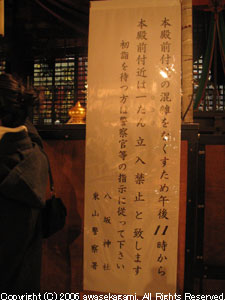 本殿前付近の混雑をなくすため午後11時から
本殿前付近は一たん立入禁止と致します
初詣を待つ方は警察官等の指示に従って下さい
八坂神社
東山警察署
Copyright (C) 2006 awasekagami. All Rights